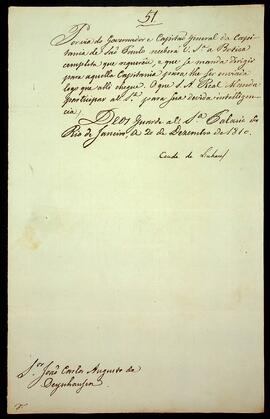 51
Por via do Governador e Capitaõ General da Capi-
tania de Saõ Paulo receberá V. S.ª a Botica
completa que requereu, e que se manda dirigir
para aquella Capitania para lhe ser enviada
logo que alli chegue. O que S. A. Real Manda
participar a V. S.ª para sua devida intelligen-
cia.
Deos Guarde a V. S.ª Palacio do
Rio de Janeiro, a 20 de Dezembro de 1810.
Conde de Linhares
S.or Joaõ Carlos Augusto de
Oeynhausen